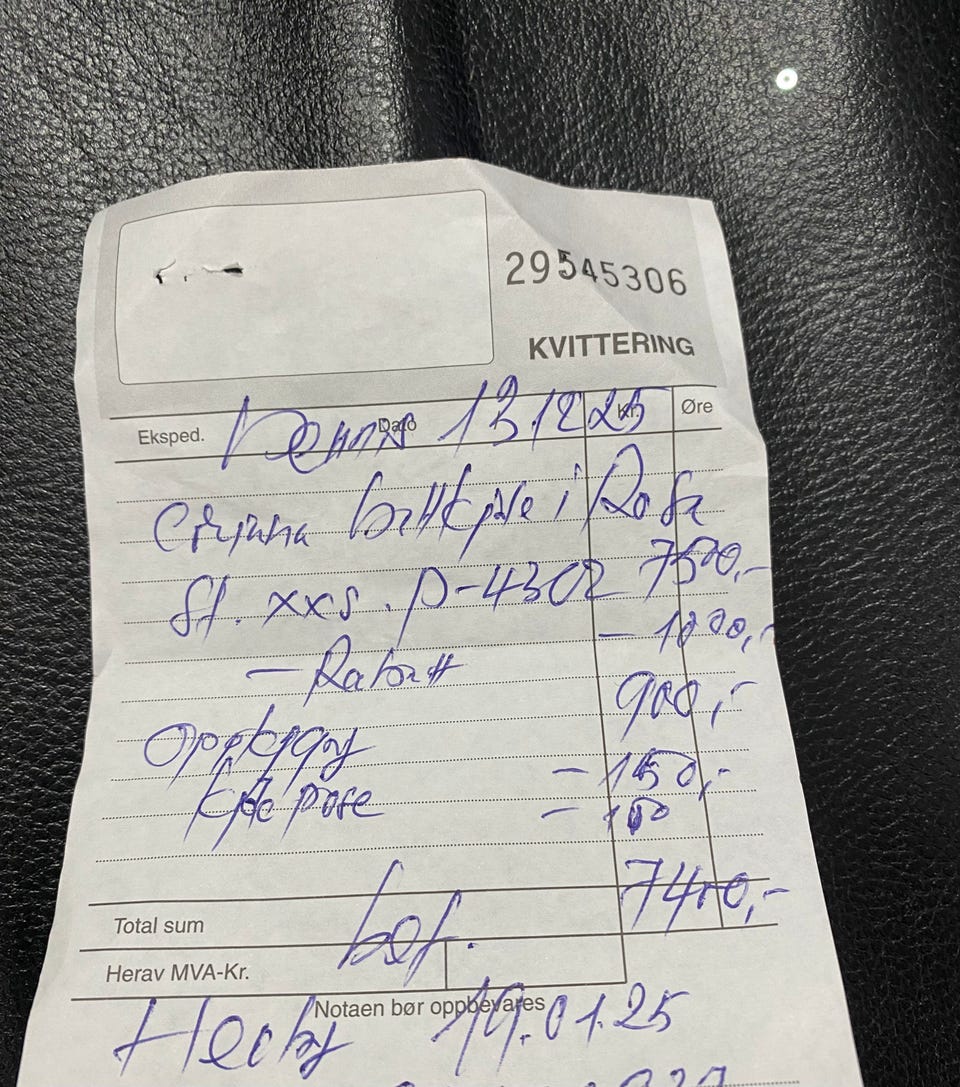 29545306
KVITTERING
Eksped. Dato 13.12.25 Kr. Øre
i Rosa
St. xxs. P-4302 7500,-
- Rabatt - 1000,-
900,-
Kjole pose - 150,-
- 100
Total sum bet. 7400,-
Herav MVA-Kr.
Notaen bør oppbevares
19.01.25